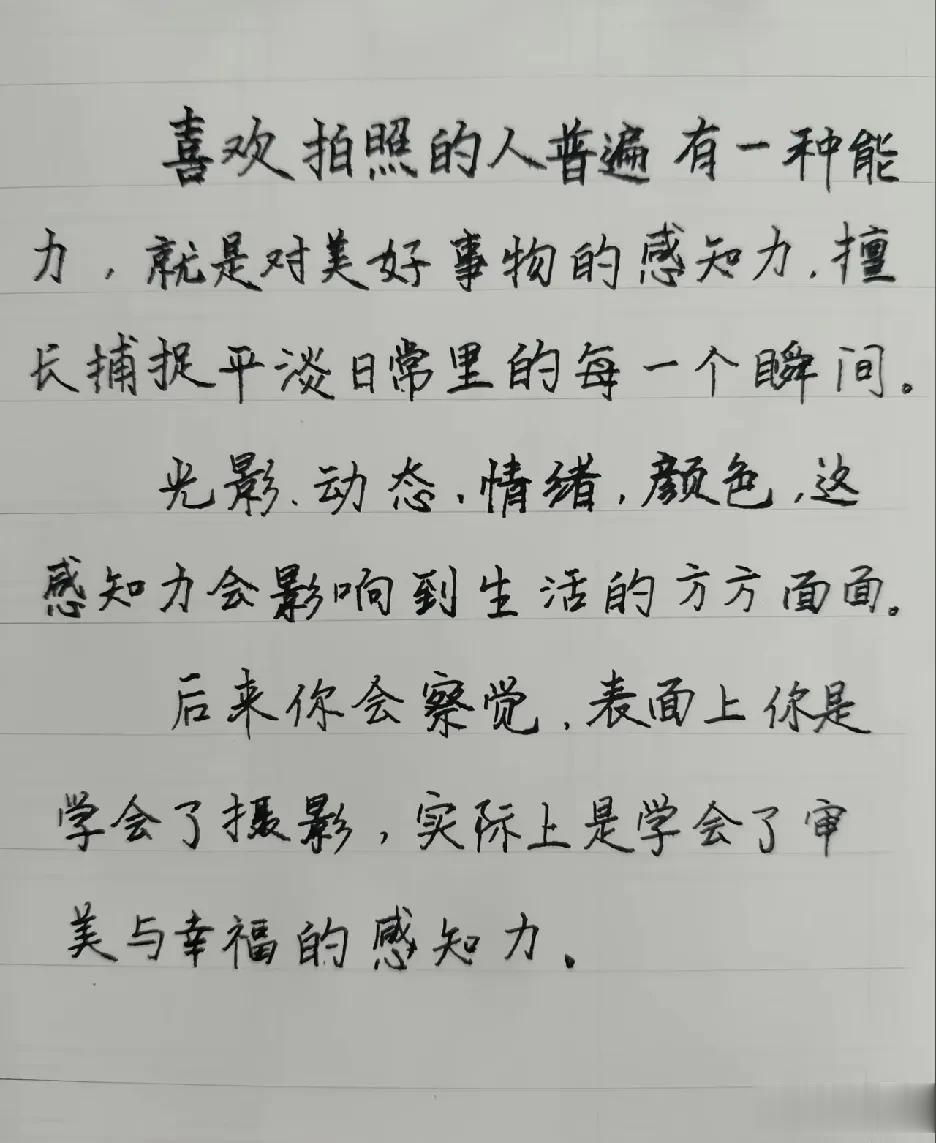 喜欢拍照的人普遍有一种能
力，就是对美好事物的感知力，擅
长捕捉平淡日常里的每一个瞬间。
光影、动态、情绪，颜色，这
感知力会影响到生活的方方面面。
后来你会察觉，表面上你是
学会了摄影，实际上是学会了审
美与幸福的感知力。